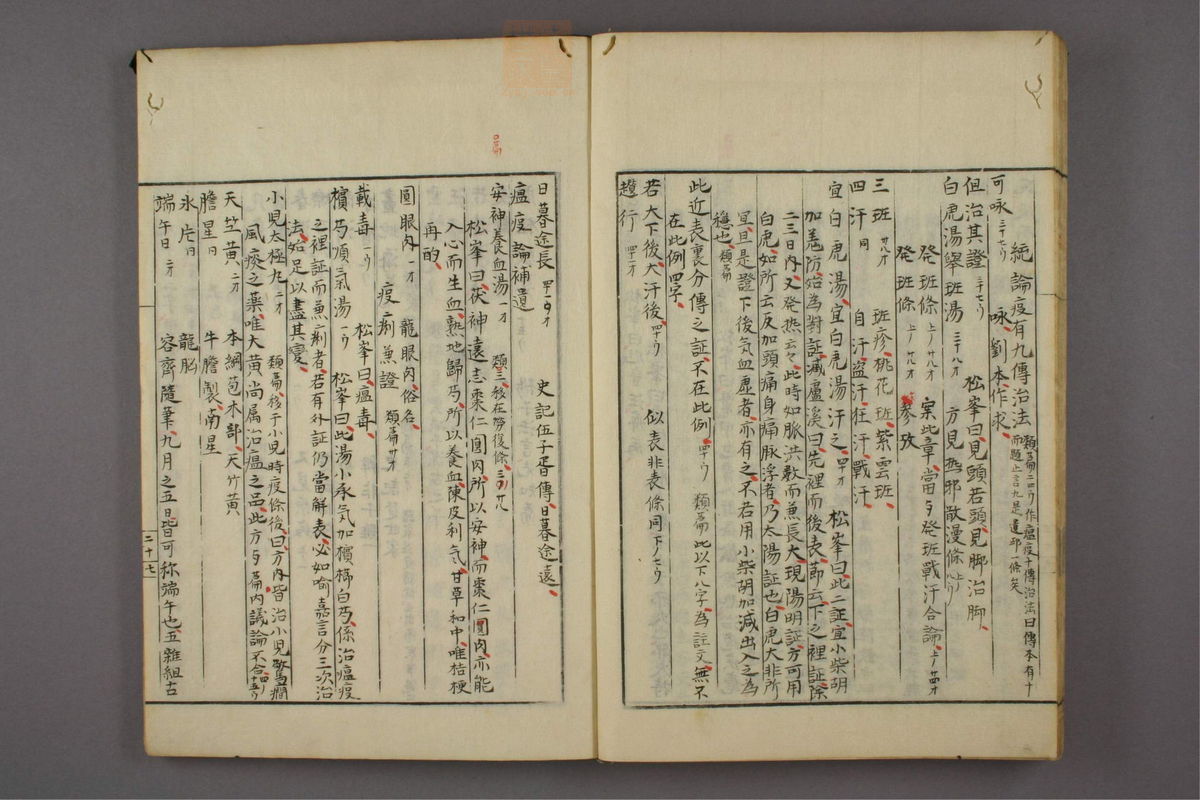 統論疫有九傳治法 類萹二四ウ作瘟疫十傳治法曰傳本有十
而題止言九是遺却一條矣
可咏 三十七ウ 咏劉本作求
但治其證 三十七ウ 松峯曰見頭若頭見脚治脚
白虎湯舉斑湯 三十八才 方見熱邪散漫條 上ノ八ウ
発斑條 上ノ廿八才 案此章當与発斑戰汗合論 上ノ廿四才
発班條 上ノ廿八才 參攷
三班 廿八才 班疹桃花班紫雲班
四汗 同 自汗盗汗狂汗戰汗
宜白虎湯宜白虎湯汗之 四十才 松峯曰此二証宜小柴胡
加羌防始為對証減盧溪曰先裡而後表節云下之裡証除
二三日内又発热云々此時如脈洪数而兼長大現陽明証方可用
白虎如所云反加頭痛身痛脉浮者乃太陽証也白虎大非所
宜且是證下後気血虚者亦有之不若用小柴胡加減出入之為
穏也 類萹
此近表裏分傳之証不在此例 四十ウ 類萹此以下八字為註文無不
在此例四字
若大下後大汗後 四十ウ 似表非表條同 下ノ七ウ
趨行 四十一才
日暮途長 史記伍子胥傳日暮途遠
瘟疫論補遺
安神養血湯 一才 類三
松峯曰茯神遠志棗仁圓肉所以安神而棗仁圓肉亦能
入心而生血熟地歸芍所以養血陳皮利気甘草和中唯桔梗
再酌
圓眼肉 一才 龍眼肉俗名
疫痢兼證 類萹廿才
載毒 一ウ 松峯曰瘟毒
檳芍順気湯 一ウ 松峯曰此湯小承気加檳榔白芍係治瘟疫
之裡証而兼痢者若有外証仍當解表必如喻嘉言分三次治
法如足以盡其變
小児太極丸 二才 類萹移于小児時疫條後曰方内皆治小児驚癇
風痰之藥唯大黄尚属治瘟之品此方与萹内議論不合
天竺黄 二才 本綱苞木部天竹黄
膽星 同 牛膽製南星
氷片 同 龍脳
端午日 二才 容齋隨筆九月之五日皆可称端午也五雜組古
二十七